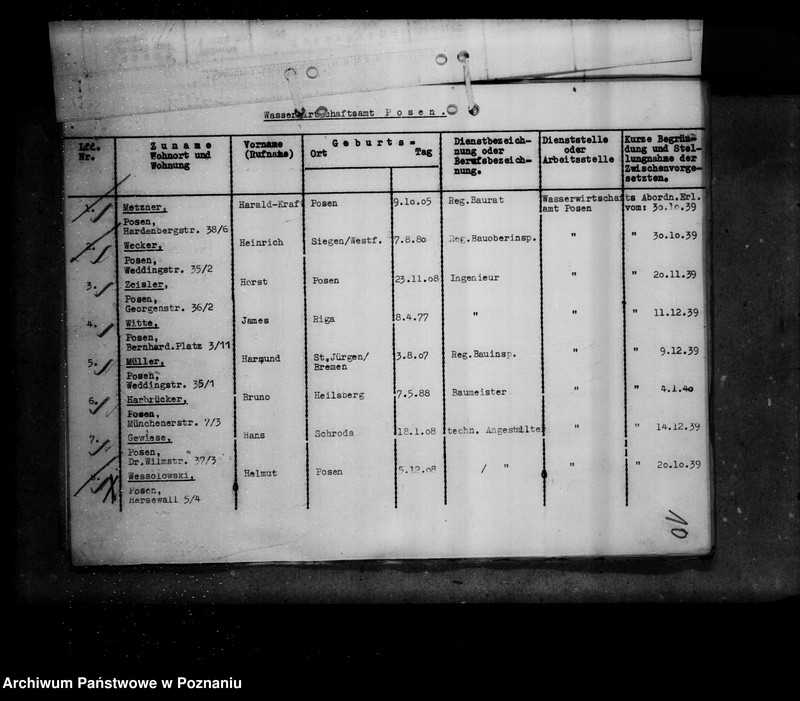 Wasserwirtschaftsamt Posen.
Lfd. Nr. | Zuname Wohnort und Wohnung | Vorname (Rufname) | Geburts- Ort | Tag | Dienstbezeichnung oder Berufsbezeichnung. | Dienststelle oder Arbeitsstelle | Kurze Begründung und Stellungnahme der Zwischenvorgesetzten.
1. Metzner, Harald-Kraft Posen 9.10.05 Reg.Baurat Wasserwirtschafts Abordn.Erl.
Posen, amt Posen vom: 30.10.39
Hardenbergstr. 38/6
Wecker, Heinrich Siegen/Westf. 7.8.80 Reg.Bauoberinsp. " " 30.10.39
Posen,
Weddingstr. 35/2
3. Zeisler, Horst Posen 23.11.08 Ingenieur " " 20.11.39
Posen,
Georgenstr. 36/2
4. Witte, James Riga 8.4.77 " " " 11.12.39
Posen,
Bernhard.Platz 3/11
5. Müller, St.Jürgen/ 3.8.07 Reg.Bauinsp. " " 9.12.39
Posen, Bremen
Weddingstr. 35/1
6. Harbrücker, Bruno Heilsberg 7.5.88 Baumeister " " 4.1.40
Posen,
Münchenerstr. 7/3
7. Gewiese, Hans Schroda 18.1.08 techn. Angestellter " " 14.12.39
Posen,
Dr.Wilmstr. 37/3
Wessolowski, Helmut Posen 5.12.08 / " " " 20.10.39
Posen,
Hersewall 5/4
10
Archiwum Państwowe w Poznaniu